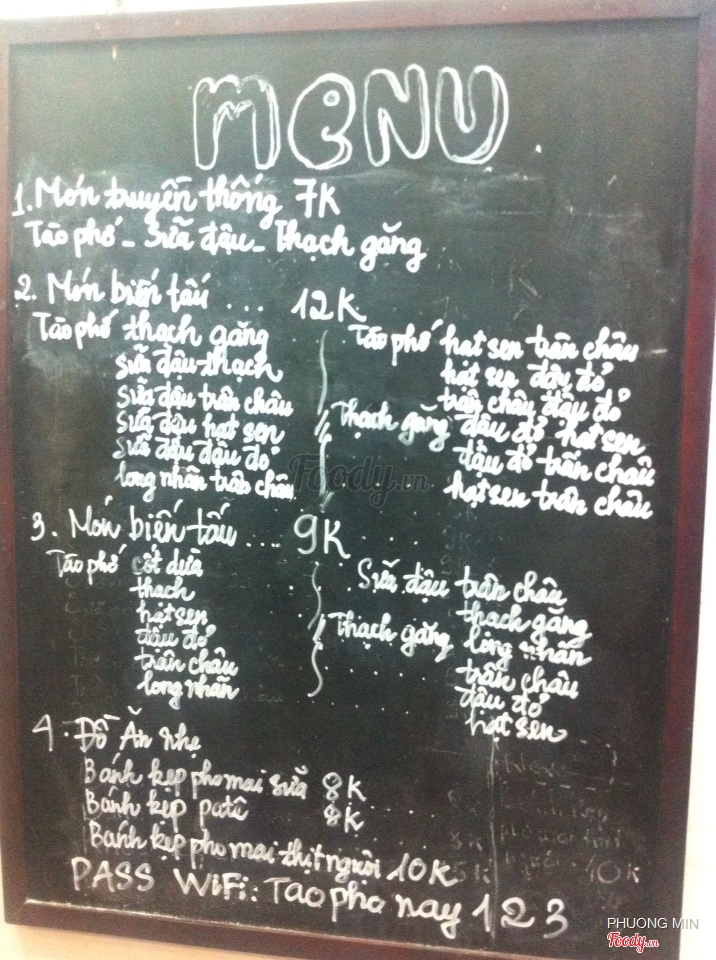 MENU
1. Món truyền thống 7K
Tào phớ - Sữa đậu - Thạch găng
2. Món biến tấu ... 12K
Tào phớ thạch găng
sữa đậu thạch
sữa đậu trân châu
sữa đậu hạt sen
sữa đậu đậu đỏ
long nhãn trân châu
Tào phớ hạt sen trân châu
hạt sen đậu đỏ
trân châu đậu đỏ
Thạch găng đậu đỏ hạt sen
đậu đỏ trân châu
hạt sen trân châu
3. Món biến tấu .... 9K
Tào phớ cốt dừa
thạch
hạt sen
đậu đỏ
trân châu
long nhãn
Sữa đậu trân châu
thạch găng
Thạch găng long nhãn
trân châu
đậu đỏ
hạt sen
4. Đồ Ăn nhẹ
Bánh kẹp pho mai sữa 8K
Bánh kẹp patê 8K
Bánh kẹp pho mai thịt nguội 10K
PASS WiFi: Tao pho nay 123
Foody.vn
PHUONG MIN
Foody.vn